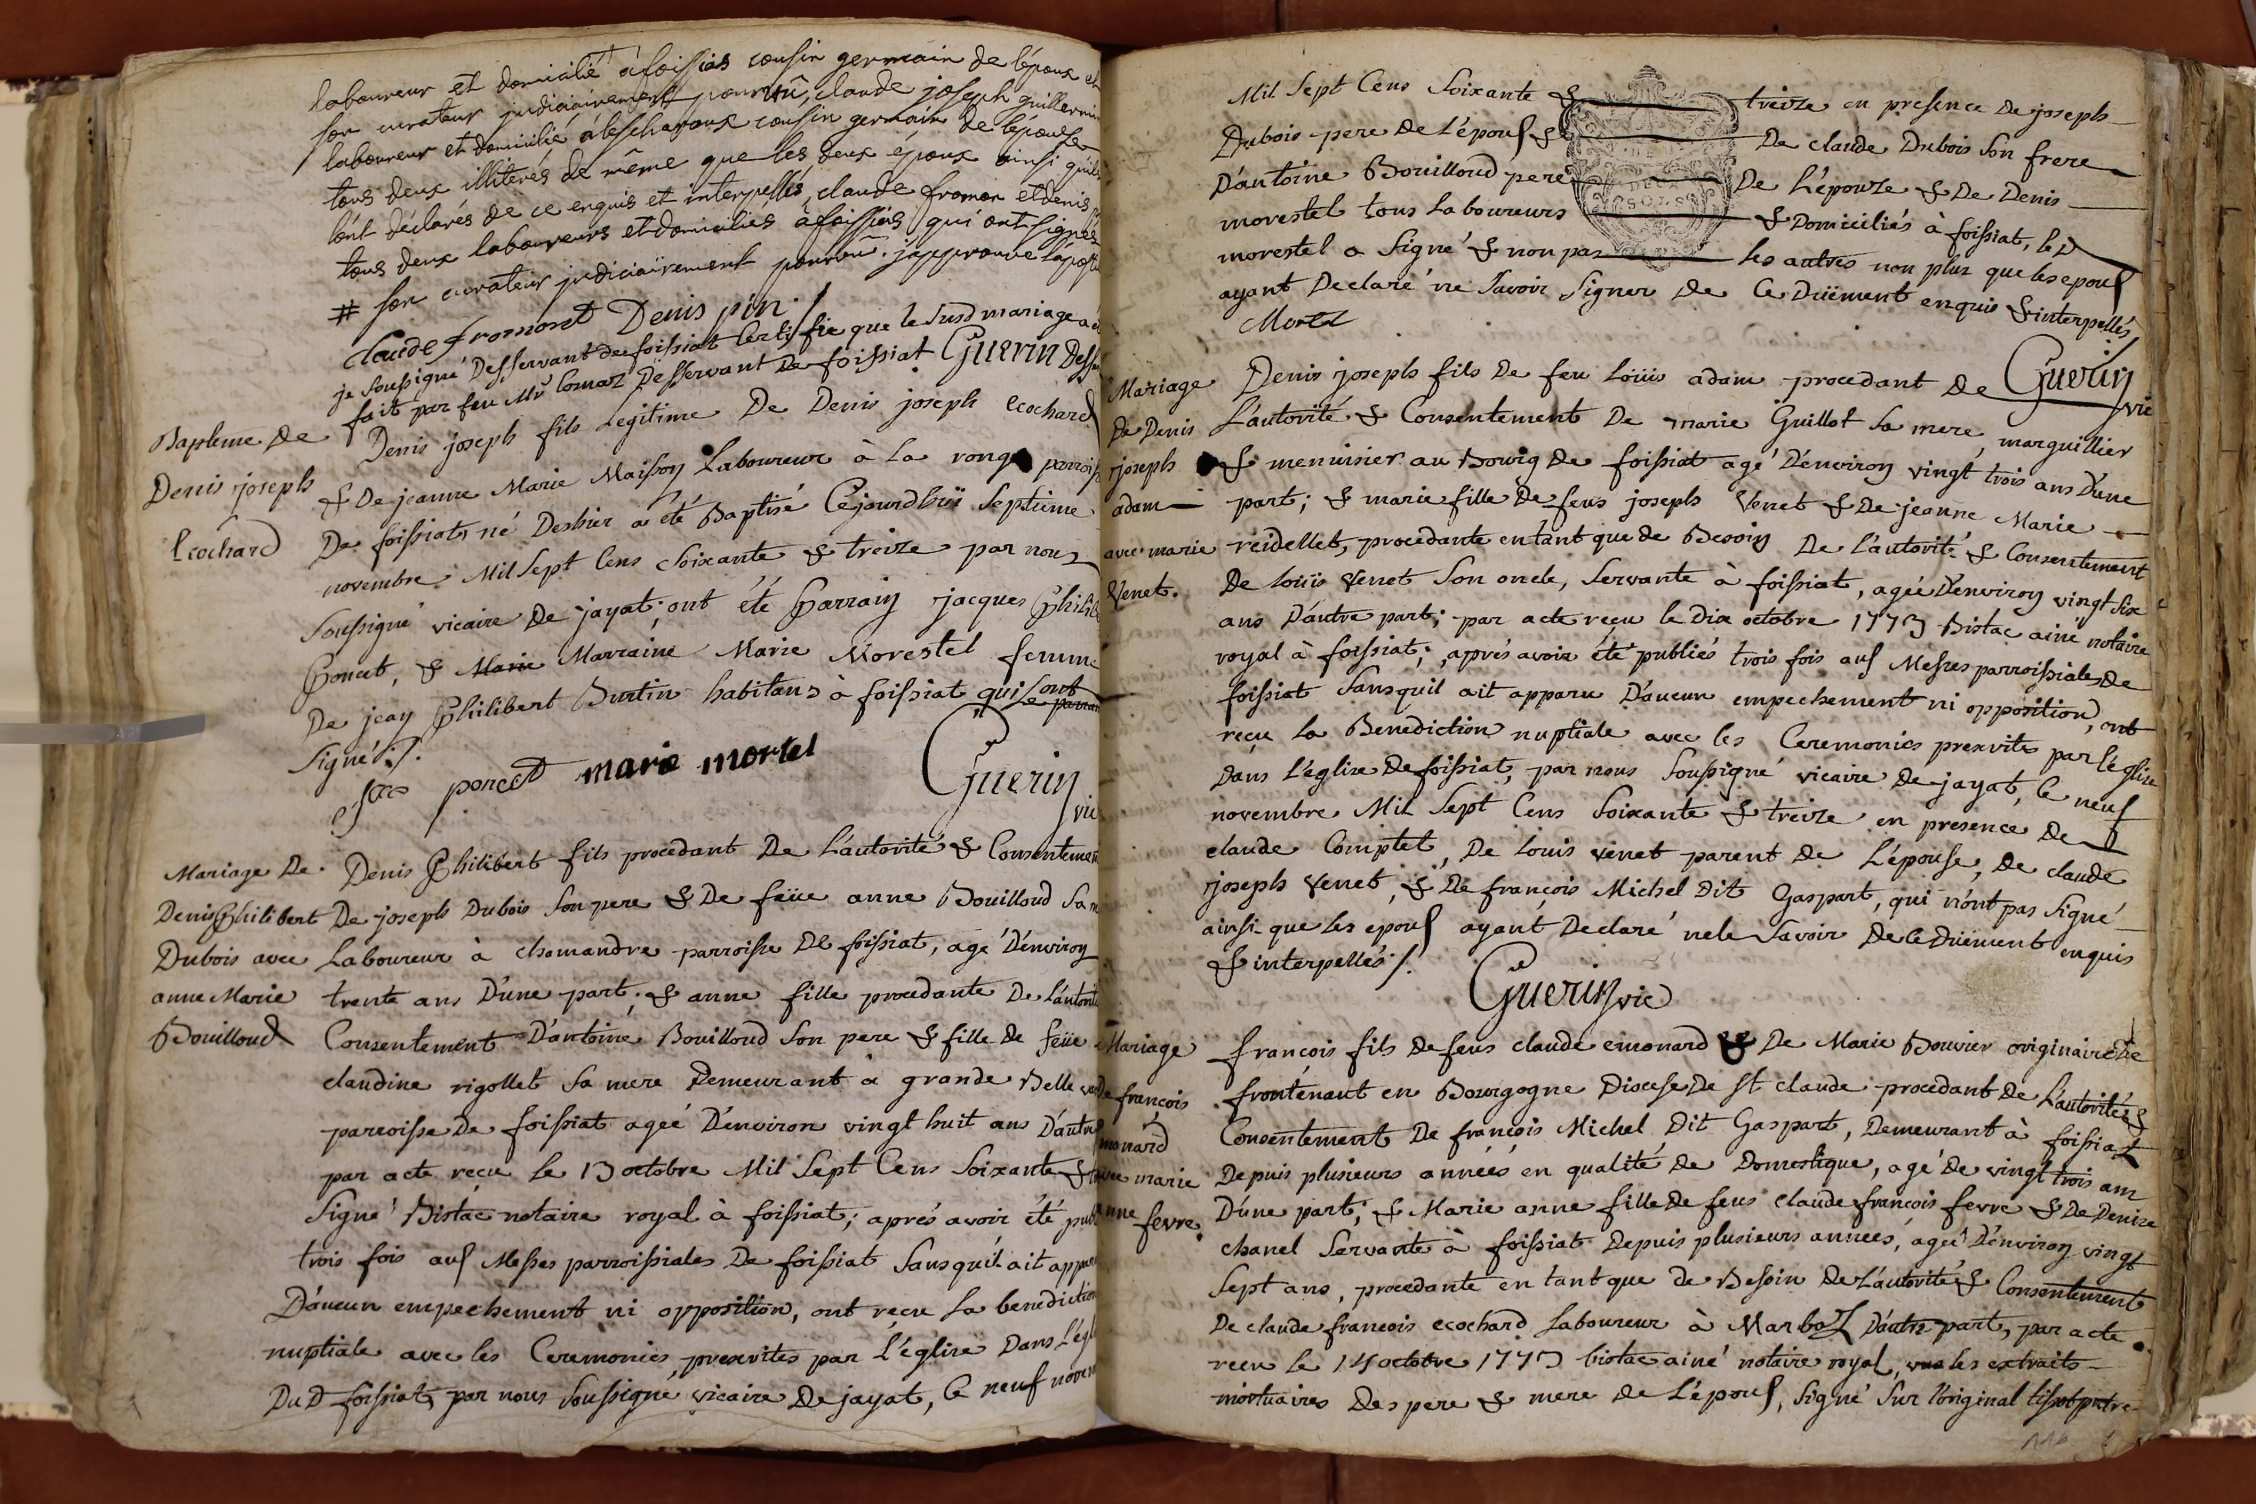 laboureur et domicilié à foissias cousin germain de lépoux et
son curateur judiciairement pourvû, claude joseph guillermin
laboureur et domicilié à léscharoux cousin germain de lépouse
tous deux illiterés de même que les deux époux ainsi quils
lont déclarés de ce enquis et interpellés, claude fromon et denis
tous deux laboureurs et domiciliés à foissias qui ont signés
# son curateur judiciairement pourvû. japprouve lapostil
Claude fromont Denis pin ./
je soussigné Desservant de foissiat Certiffie que le susd mariage a été
fait par feu Mr lomaz Desservant de foissiat Guerin Dess
Bapteme de
Denis joseph
Ecochard
Denis joseph fils Legitime De Denis joseph ecochard
& De jeanne Marie Maisson Laboureur à La ronge parroisse
De foissiat, né Deshier a été Baptisé Cejourd'huï Septieme
novembre Mil Sept Cens Soixante & treize par nous
Soussigné vicaire De jayat; ont été Parrain jacques Philib
Poncet, & Marie Marraine Marie Morestel femme
De jean Philibert Burtin habitans à foissiat qui sont
Signé ./.
Jacs poncet marie mortel
Guerin
vic
Mariage De
Denis Philibert
Dubois avec
anne Marie
Bouilloud
Denis Philibert fils procedant De L'autorité & Consentement
De joseph Dubois Son pere & De feüe anne Bouilloud Sa m
Laboureur à chamandre parroisse De foissiat, agé D'environ
trente ans D'une part; & anne fille procedante De L'autorité
Consentement D'antoine Bouilloud Son pere & fille de feüe
claudine rigollet Sa mere Demeurant à grande Belle
parroisse De foissiat ageé D'environ vingt huit ans D'autre
par acte reçu le 13 octobre Mil Sept Cens Soixante &
Signé Bistac notaire royal à foissiat; aprés avoir été publ
trois fois aux Messes parroissiales De foissiat Sans quil ait apparu
D'aucun empechement ni opposition, ont reçu La benediction
nuptiale avec les Ceremonies prescrites par L'église Dans L'égl
Du D foissiat, par nous Soussigné vicaire De jayat, le neuf novem
Mil Sept Cens Soixante & treize en presence De joseph
Dubois pere De L'epoux & De claude Dubois Son frere
D'antoine Bouilloud pere De L'épouze & De Denis
morestel tous Laboureurs & Domiciliés à foissiat, le D
morestel a Signé & non pas les autres non plus que les epoux
ayant Declaré ne Savoir Signer De Ce Düement enquis & interpellés
Mortel
Guerin
vic
Mariage
De Denis
joseph
adam
avec marie
Venet.
Denis joseph fils De feu Loüis adam procedant de
L'autorité & Consentement De marie Guillot Sa mere, marguillier
& menuisier au Bourg De foissiat agé D'environ vingt trois ans D'une
part; & marie fille De feus joseph Venet & De jeanne Marie
reidellet, procedante en tant que de Besoin De L'autorité & Consentement
De Loüis Venet Son oncle, Servante à foissiat, ageé D'environ vingt Six
ans D'autre part; par acte reçu le Dix octobre 1773 Bistac ainé notaire
royal à foissiat; aprés avoir été publiés trois fois aux Messes parroissiales De
foissiat Sans quil ait apparu D'aucun empechement ni opposition, ont
reçu La Benediction nuptiale avec les Ceremonies prescrites par L'église
Dans L'eglise De foissiat, par nous Soussigné vicaire De jayat, le neuf
novembre Mil Sept Cens Soixante & treize en presence De
claude Comptet, De Louis venet parent De L'épouse, De claude
joseph Venet, & De françois Michel Dit Gaspart, qui n'ont pas Signé
ainsi que les epoux ayant Declaré ne le Savoir De Ce Düement enquis
& interpellés ./.
Guerin vic
Mariage
de françois
emonard
avec marie
anne fevre.
françois fils De feus claude emonard & De Marie Bouvier originaire De
frontenant en Bourgogne Diocese De St claude procedant De L'autorité &
Consentement De françois Michel Dit Gaspart, Demeurant à foissiat
Depuis plusieurs années en qualité De Domestique, agé De vingt trois ans
D'une part; & Marie anne fille De feus claude françois fevre & De Denise
chanel Servante à foissiat Depuis plusieurs années, ageé D'environ vingt
Sept ans, procedante en tant que de Besoin De L'autorité & Consentement
De claude françois ecochard Laboureur à Marboz D'autre part, par acte
reçu le 14 octobre 1773 bistac ainé notaire royal, vu les extraits
mortuaires Des pere & mere De L'époux, Signé Sur l'original